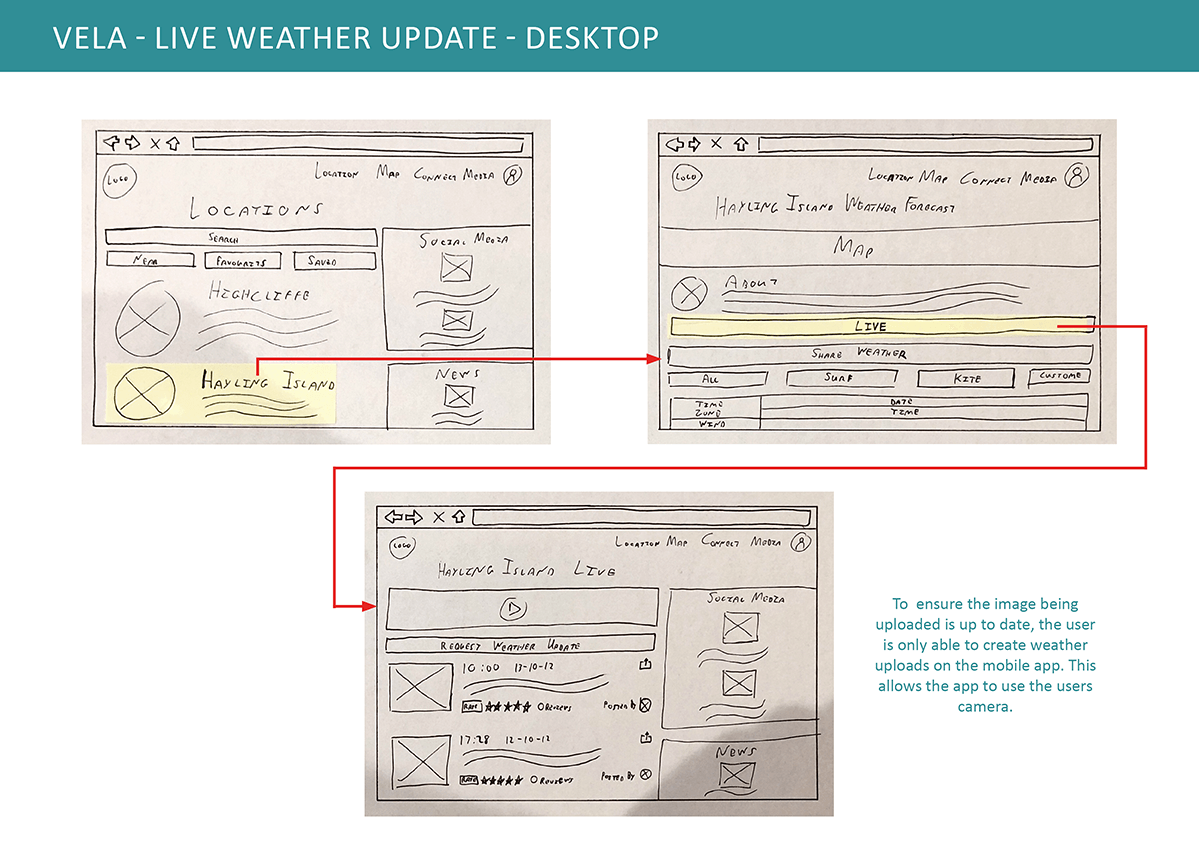 VELA - LIVE WEATHER UPDATE - DESKTOP
LOGO
LOCATION MAP CONNECT MEDIA
LOCATIONS
SEARCH
NEAR FAVOURITS SAVED
HIGHCLIFFE
HAYLING ISLAND
SOCIAL MEDIA
NEWS
LOGO
LOCATION MAP CONNECT MEDIA
HAYLING ISLAND WEATHER FORECAST
MAP
ABOUT
LIVE
SHARE WEATHER
ALL SURF KITE CUSTOME
TIME ZONE
DATE
TIME
WIND
LOGO
LOCATION MAP CONNECT MEDIA
HAYLING ISLAND LIVE
REQUEST WEATHER UPDATE
10:00 13-10-12
RATE REVIEWS POSTED
17:28 12-10-12
RATE REVIEWS POSTED BY
SOCIAL MEDIA
NEWS
To ensure the image being
uploaded is up to date, the user
is only able to create weather
uploads on the mobile app. This
allows the app to use the users
camera.